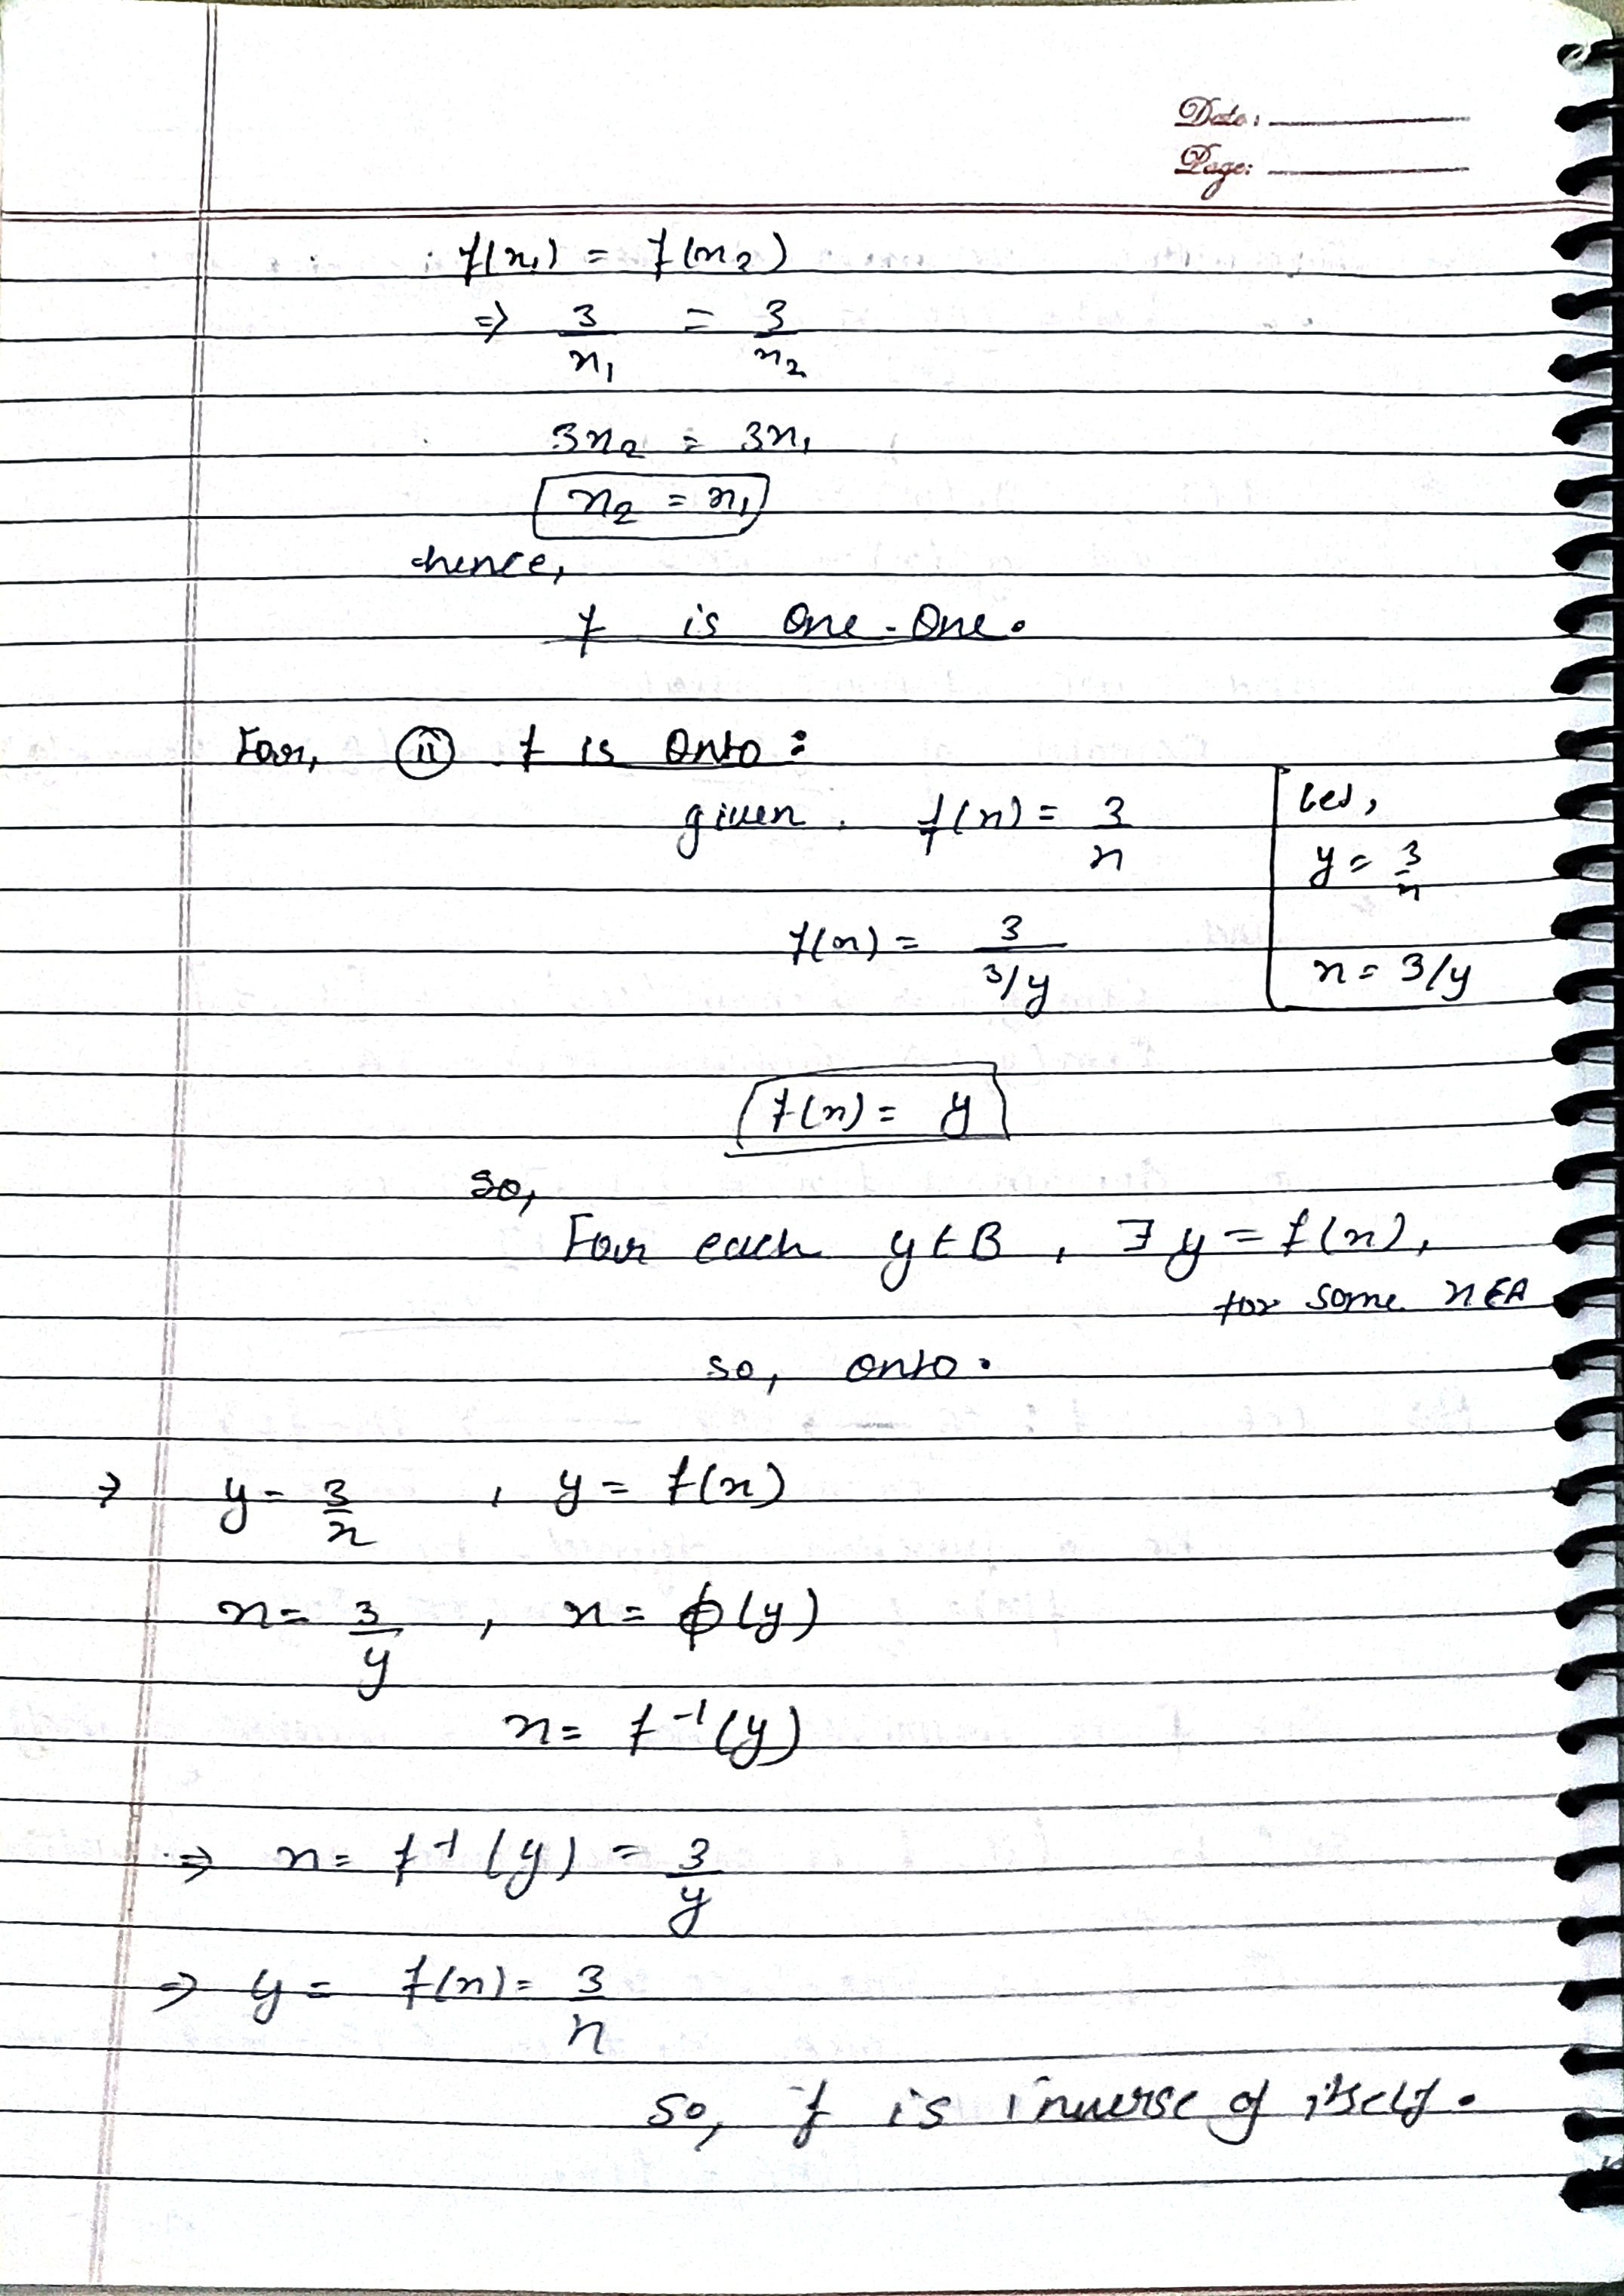 Date:
Page:
f(x₁) = f(x₂)
⇒ 3/x₁ = 3/x₂
3x₂ = 3x₁
x₂ = x₁
hence,
f is One-One.
For, (ii) f is Onto:
given, f(x) = 3/x
let,
y = 3/x
x = 3/y
f(x) = 3/(3/y)
f(x) = y
so,
For each y ∈ B, ∃ y = f(x),
for some x ∈ A
so, onto.
→ y = 3/x , y = f(x)
x = 3/y , x = ϕ(y)
x = f⁻¹(y)
⇒ x = f⁻¹(y) = 3/y
⇒ y = f(x) = 3/x
So, f is inverse of itself.